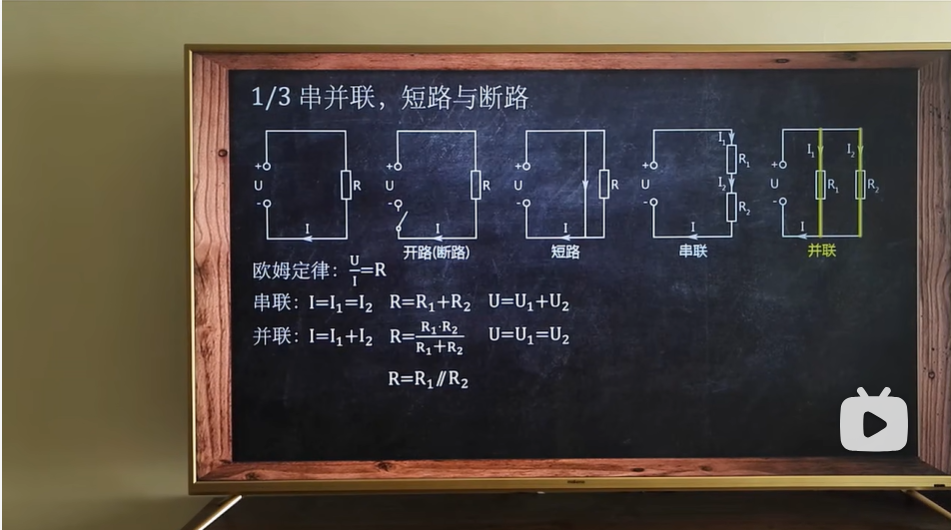 1/3 串并联，短路与断路
+ U - R I
+ U - R I
开路(断路)
+ U - R I
短路
+ U - I₁ R₁ I₂ R₂ I
串联
+ U - I₁ R₁ I₂ R₂ I
并联
欧姆定律：U/I=R
串联：I=I₁=I₂ R=R₁+R₂ U=U₁+U₂
并联：I=I₁+I₂ R=R₁·R₂/R₁+R₂ U=U₁=U₂
R=R₁//R₂